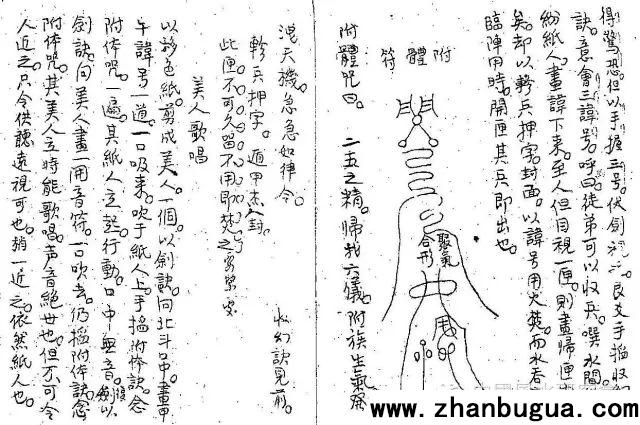 得驚恐。但以手握三号。伏劍 良久手搯收
訣。意會三諱号。呼曰。徒弟可以收兵。噀水間。
紛紙人。畫諱下來。至人但目視一匣。則畫歸匣
矣。却以軫兵押字。封面。以諱号用火焚。而水吞
臨陣用時。開匣其兵即出也。
附體符
聚氣合形
附體咒曰。 二五之精。歸我六儀。附族生氣。
混天機。急急如律令。 訣見前。
軫兵押字。遁甲 封。
此匣不可久留。不用即焚之
美人歌唱
以彩色紙。剪成美人一個。以劍訣向北斗口中。畫甲
午諱号一道。一口吸來。吹于紙人上。手搯附体訣。念
附体咒。一遍。其紙人立起行動。口中無音。復以
劍訣。向美人畫一用音符。一口吹去。仍搯附体訣。念
附体咒。其美人立時能歌唱。声音絕世也。但不可令
人近之。只令供聽遠視可也。稍一近之。依然紙人也。
www.zhanbugua.com